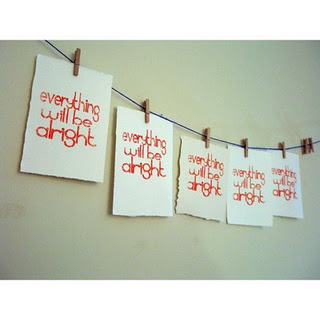 everything
will be
alright
everything
will be
alright
everything
will be
alright
everything
will be
alright
everything
will be
alright